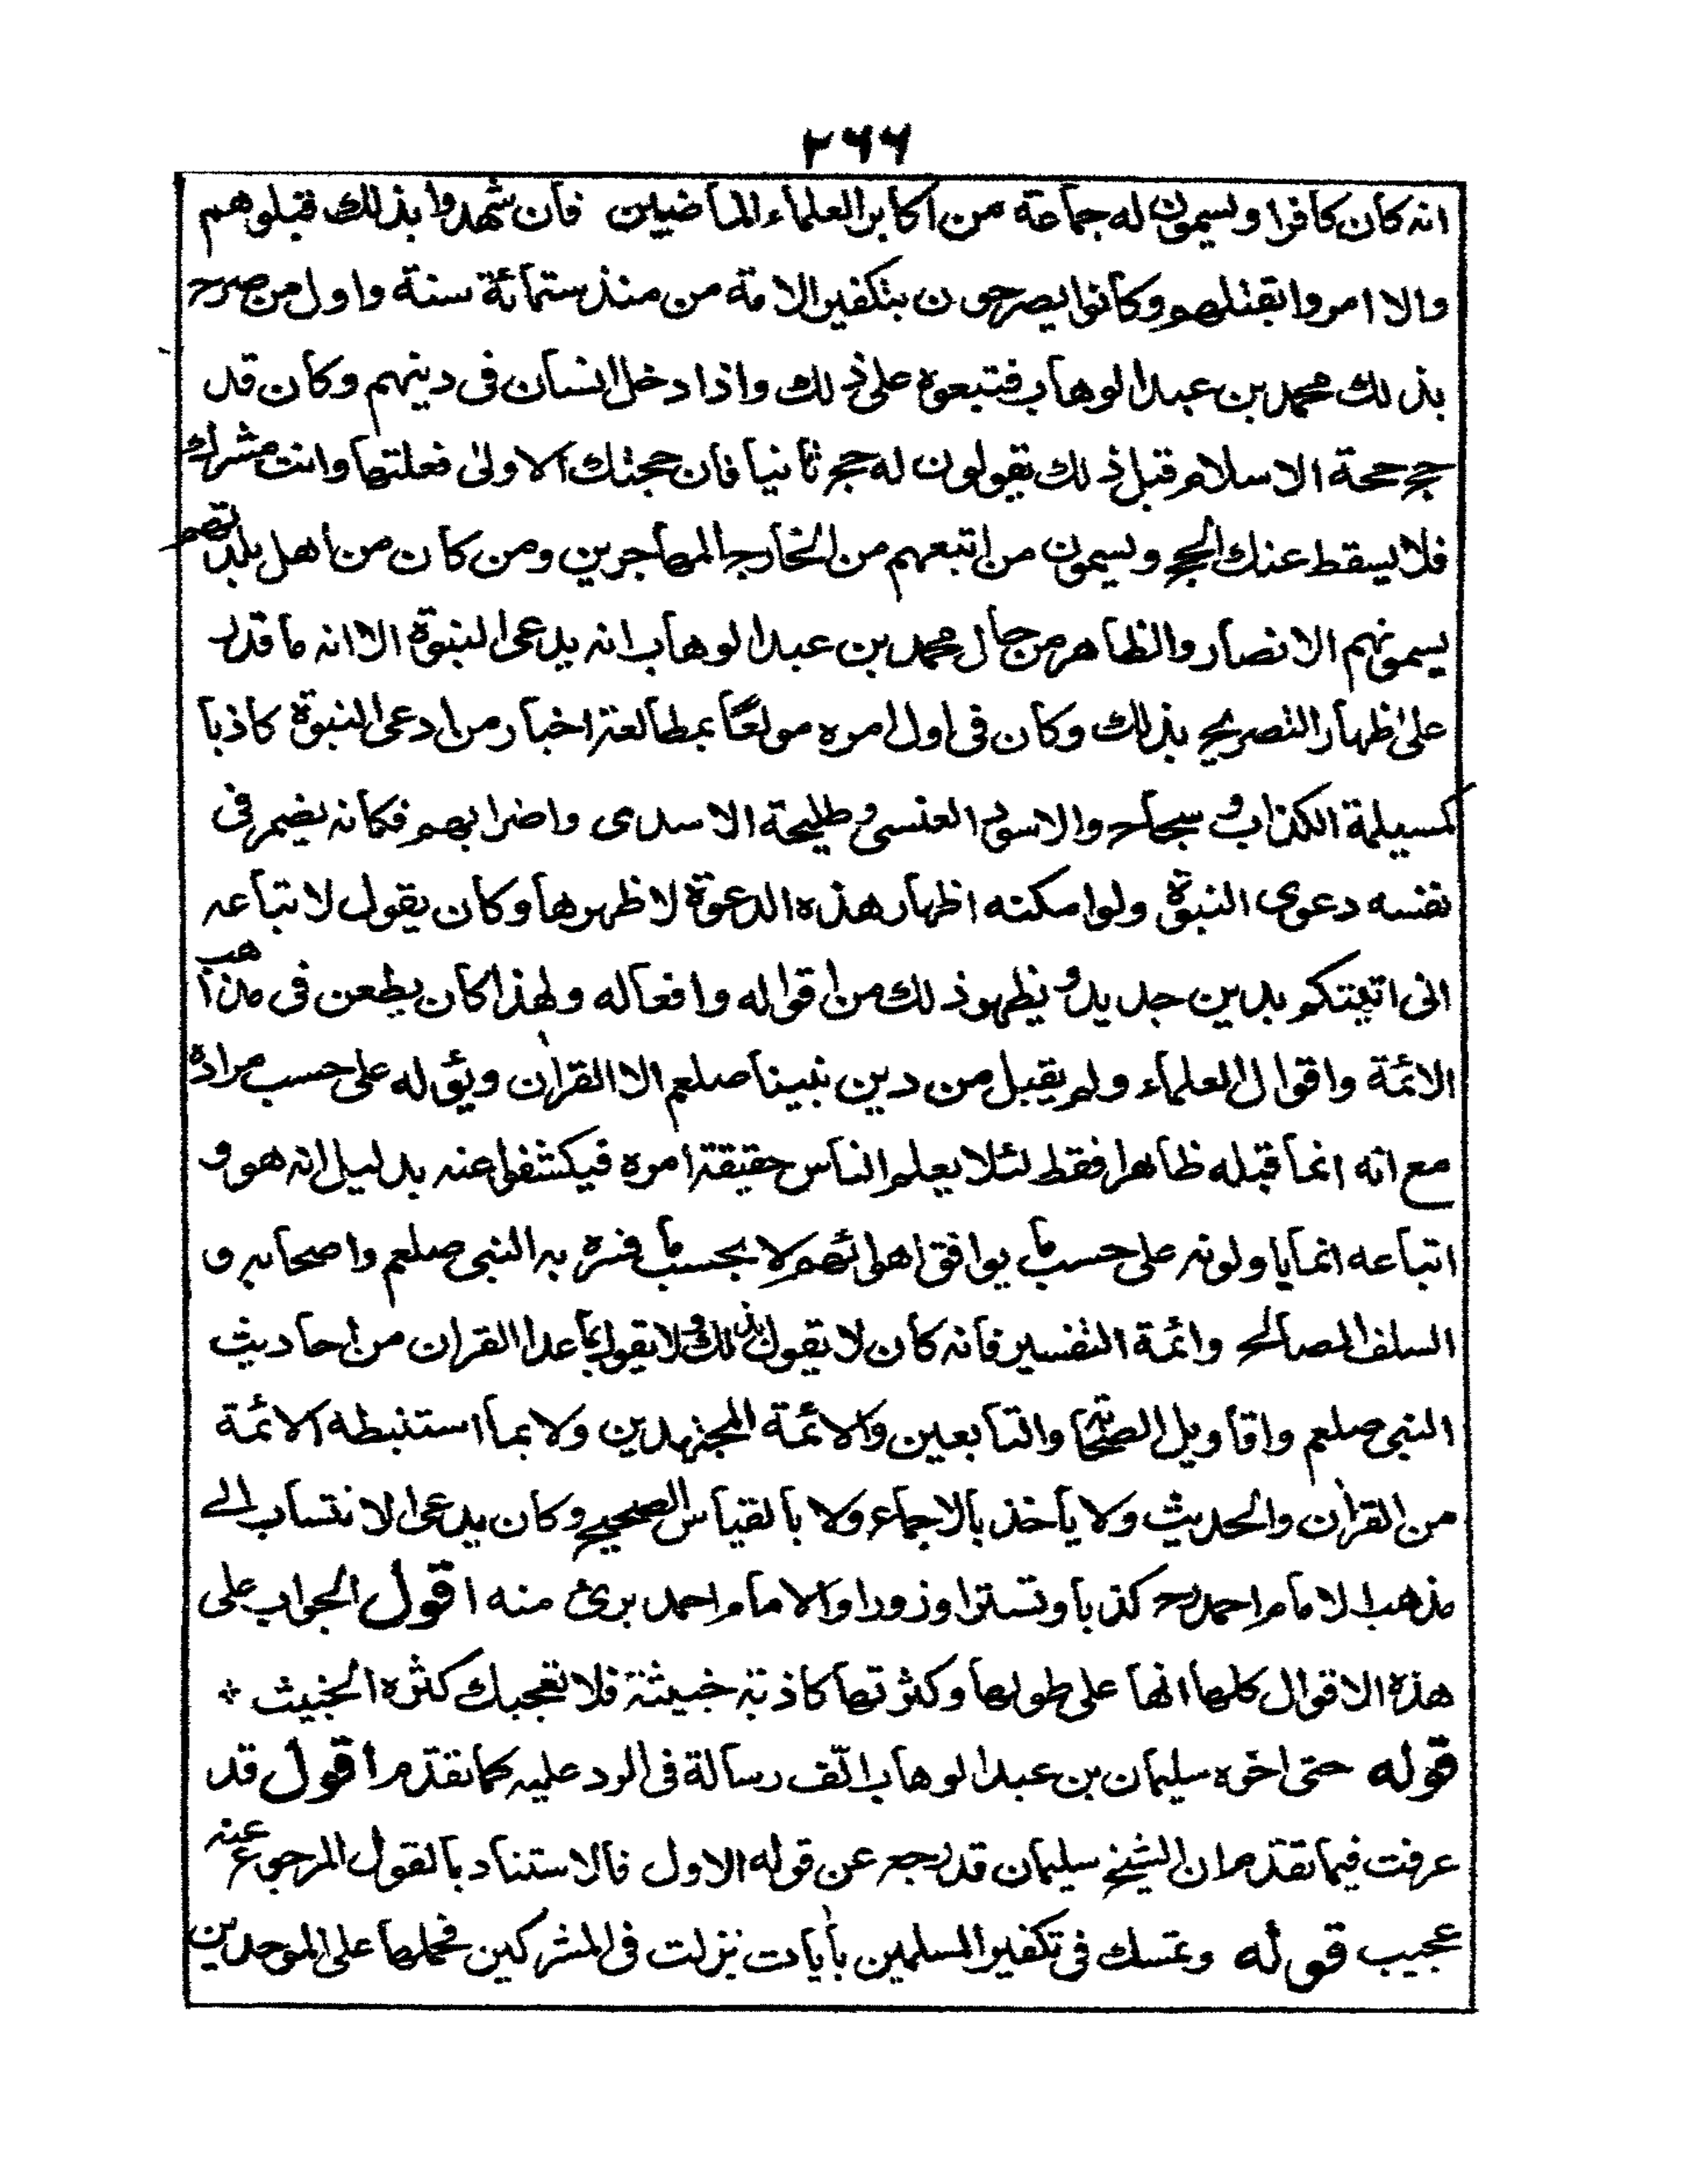 ٢٦٦
انه كان كافرا ويسمون له جماعة من اكابر العلماء الماضيين فان شهدوا بذلك قبلوهم
والا امروا بقتلهم وكانوا يصرحون بتكفير الامة من منذ ستمائة سنة واول من صرح
بذلك محمد بن عبد الوهاب فتبعوه على ذلك واذا دخل انسان فى دينهم وكان قد
حج حجة الاسلام قبل ذلك يقولون له حج ثانيا فان حجتك الاولى فعلتها وانت مشرك
فلا يسقط عنك الحج ويسمون من اتبعهم من الخارج المهاجرين ومن كان من اهل بلدتهم
يسمونهم الانصار والظاهر من حال محمد بن عبد الوهاب انه يدعى النبوة الا انه ما قدر
على اظهار التصريح بذلك وكان فى اول امره مولعًا بمطالعة اخبار من ادعى النبوة كاذبا
كمسيلمة الكذاب و سجاح والاسود العنسى و طليحة الاسدى واضرابهم فكانه يضمر فى
نفسه دعوى النبوة ولو امكنه اظهار هذه الدعوة لاظهرها وكان يقول لاتباعه
انى اتيتكم بدين جديد و يظهر ذلك من اقواله وافعاله ولهذا كان يطعن فى مذاهب
الائمة واقوال العلماء ولم يقبل من دين نبينا صلعم الا القرآن ويؤله على حسب مراده
مع انه انما قبله ظاهرا فقط لئلا يعلم الناس حقيقة امره فيكشفوا عنه بدليل انه هو و
اتباعه انما ياولونه على حسب ما يوافق اهوائهم لا بحسب ما فسره به النبى صلعم واصحابه و
السلف الصالح وائمة التفسير فانه كان لا يقول بذلك ولا يقول بما عدا القران من احاديث
النبى صلعم واقاويل الصحابة والتابعين والائمة المجتهدين ولا بما استنبطه الائمة
من القرآن والحديث ولا يأخذ بالاجماع ولا بالقياس الصحيح وكان يدعى الانتساب الى
مذهب الامام احمد رح كذبا وتسترا وزورا والامام احمد برئ منه اقول الجواب على
هذه الاقوال كلها انها على طولها وكثرتها كاذبة خبيثة فلا تعجبك كثرة الخبيث ÷
قوله حتى اخوه سليمان بن عبد الوهاب الّف رسالة فى الرد عليه كما تقدّم اقول قد
عرفت فيما تقدّم ان الشيخ سليمان قد رجع عن قوله الاول فالاستناد بالقول المرجوع عنه
عجيب قوله وتمسك فى تكفير المسلمين بآيات نزلت فى المشركين فحملها على الموحدين